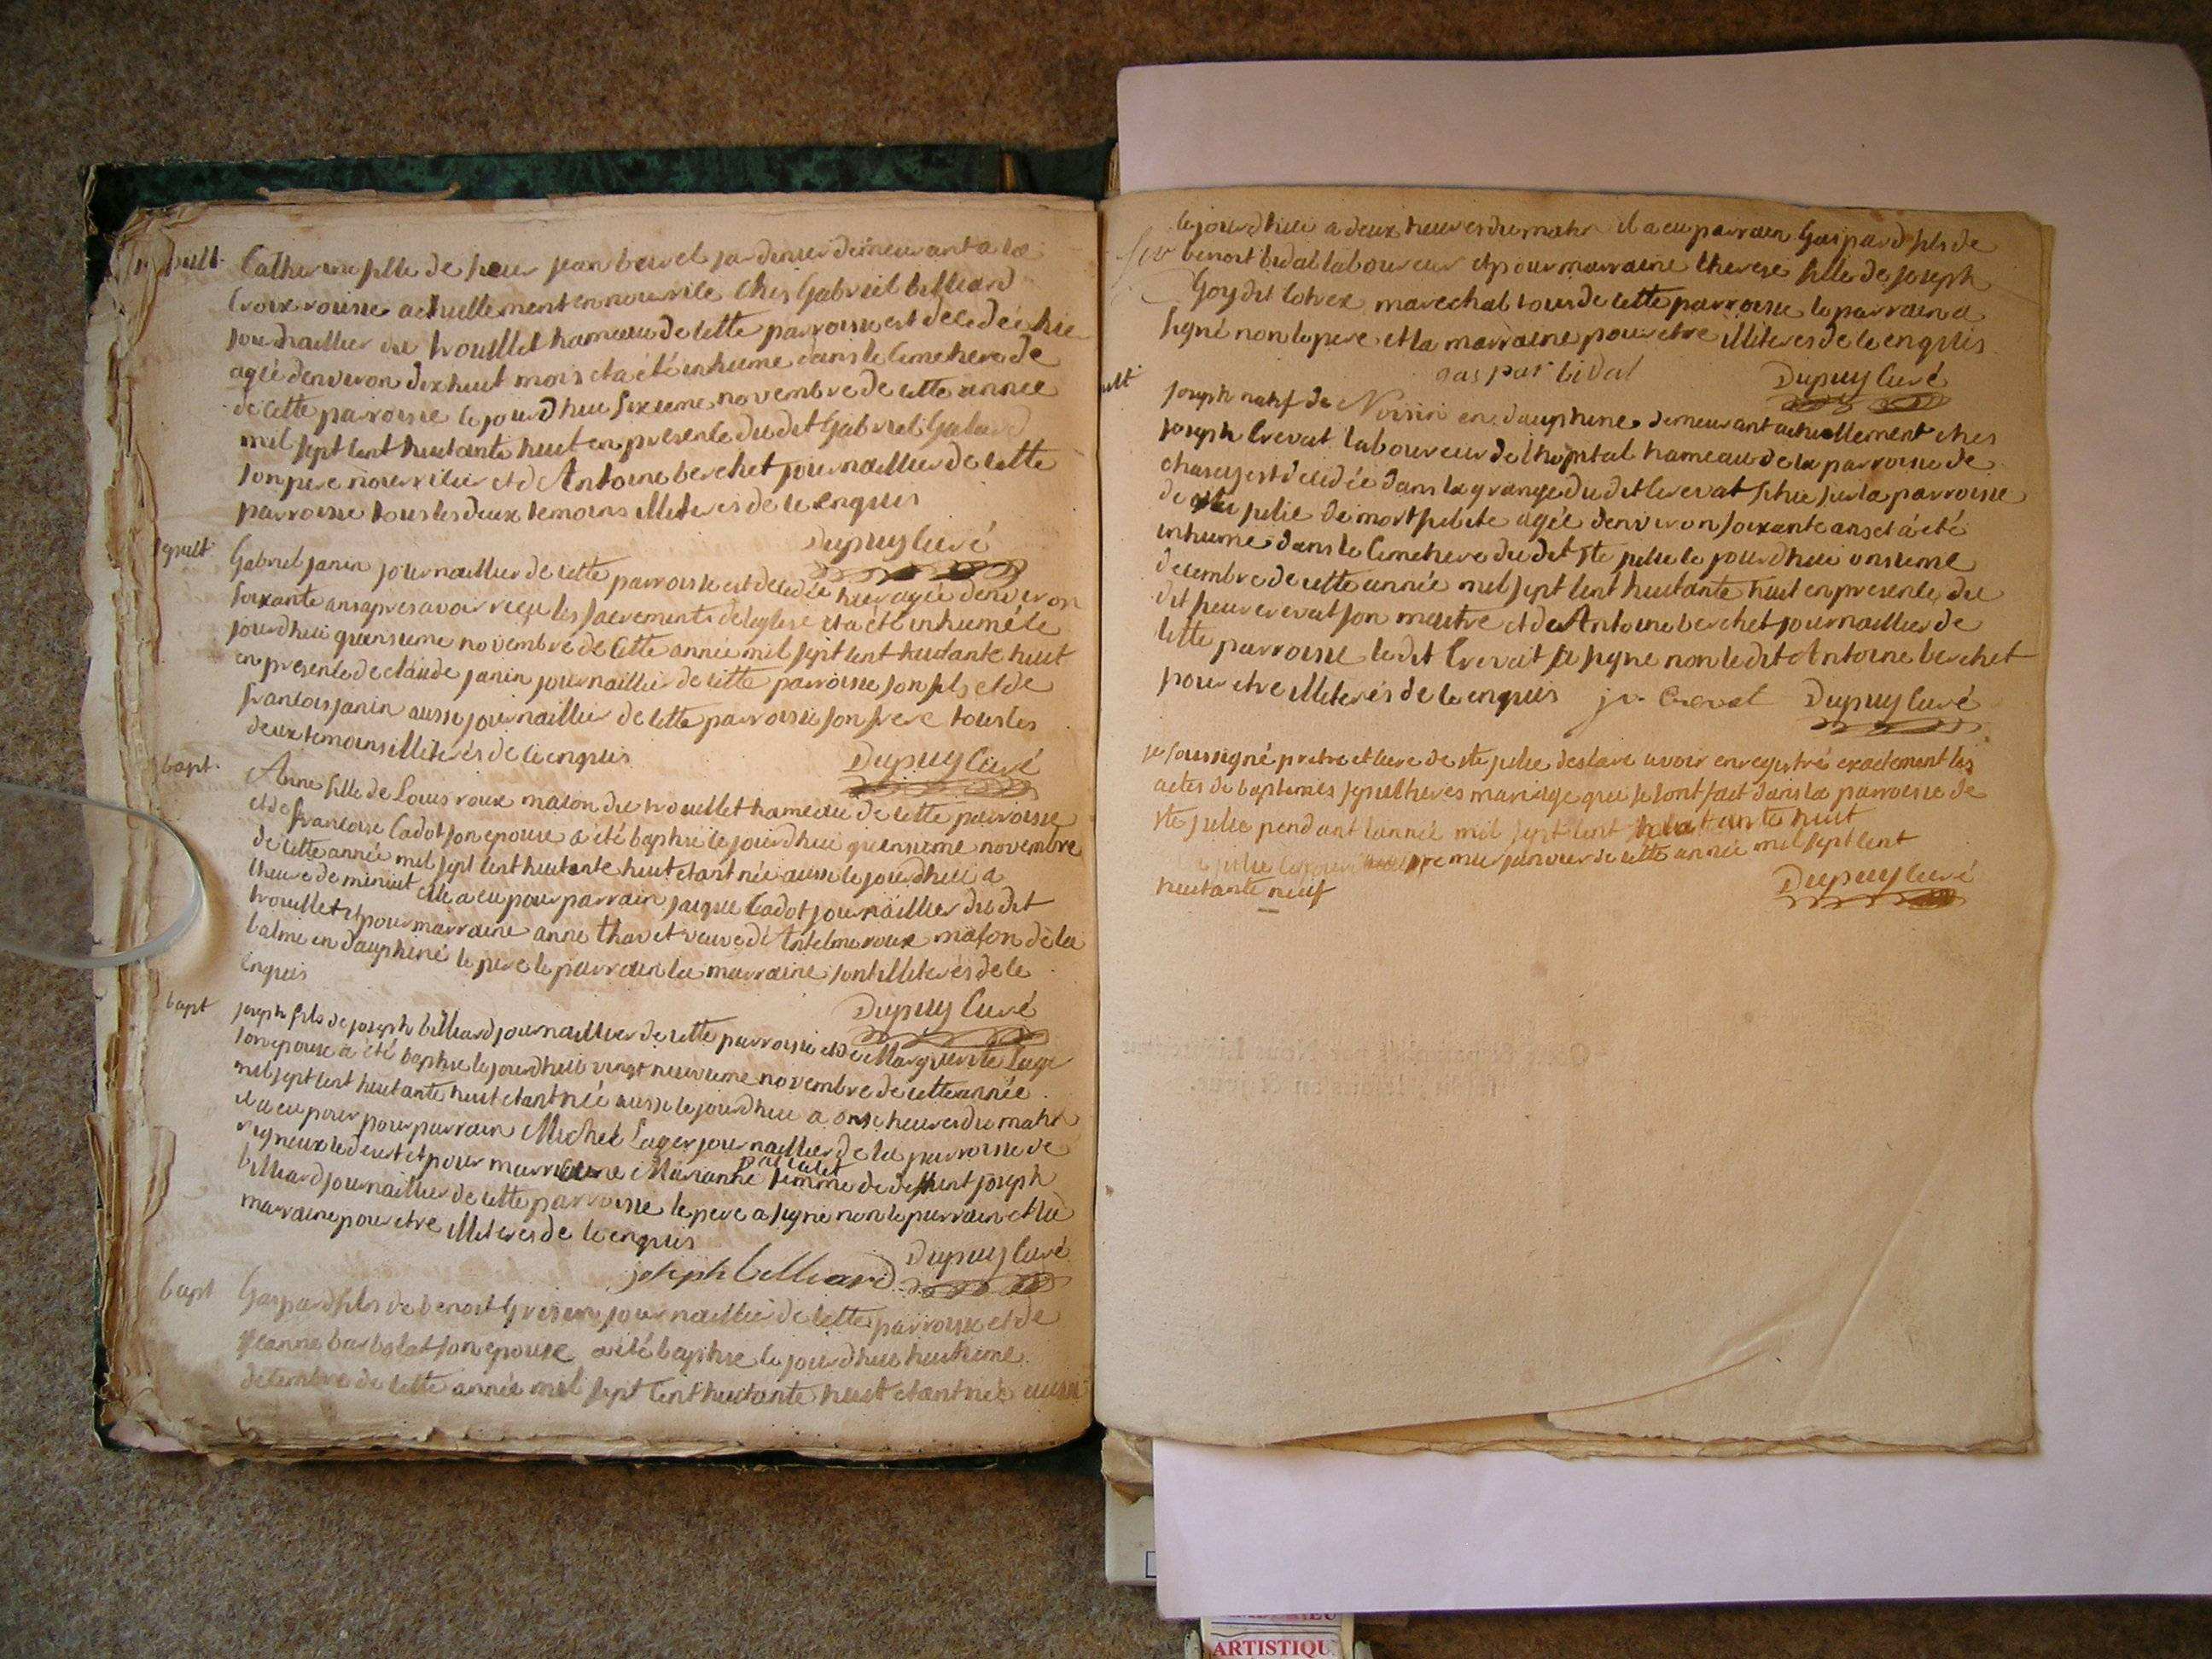 sepult.
Catherine fille de sieur jean bervel jardinier demeurant a la
Croix rousse actuellement en nourrice ches Gabriel billiard
journaillier du trouillet hameau de cette parroisse est decedée hier
agée denviron dix huit mois et a été inhumé dans le Cimetiere de
de cette parroisse le jourdhui sixieme novembre de cette année
mil sept cent huitante huit en presence du dit Gabriel
son pere nourricier et d'Antoine berchet journaillier de cette
parroisse tous les deux temoins illiterés de ce enquis
Dupuy Curé
sepult.
Gabriel janin journaillier de cette parroisse est decedée hier agée denviron
soixante ans apres avoir reçu les sacrements de léglise et a été inhumé le
jourdhui quinsieme novembre de cette année mil sept cent huitante huit
en presence de claude janin journaillier de cette parroisse son fils et de
francois janin aussi journaillier de cette parroisse son frere tous les
deux temoins illiterés de ce enquis
Dupuy Curé
bapt.
Anne fille de Louis roux macon du trouillet hameau de cette parroisse
et de francoise Cadot son epouse a été baptisé le jourdhui quinsieme novembre
de cette année mil sept cent huitante huit etant née aussi le jourdhui a
lheure de minuit elle a eu pour parrain jaque Cadot journaillier du dit
trouillet et pour marraine anne thavet veuve d'Antelme roux mason de la
balme en dauphiné le pere le parrain la marraine sont illiterés de ce
enquis
Dupuy Curé
bapt
joseph fils de joseph billiard journaillier de cette parroisse et de Marguerite Lage
son epouse a été baptisé le jourdhui vingt neuvieme novembre de cette année
mil sept cent huitante huit etant née aussi le jourdhui a onse heures du matin
il a eu pour pour parrain Michel Lager journaillier de la parroisse de
rigneux le desert et pour marraine Marianne paccalet femme de deffunt joseph
billiard journaillier de cette parroisse le pere a signé non le parrain et la
marraine pour etre illiterés de ce enquis
joseph billiard Dupuy Curé
bapt
Gaspard fils de benoit journaillier de cette parroisse et de
jeanne barbolat son epouse a été baptisé le jourdhui huitieme
decembre de cette année mil sept cent huitante huit etant née aussi
le jourdhui a deux heures du matin il a eu parrain Gaspard fils de
benoit bidal laboureur et pour marraine therese fille de joseph
Goy dit marechal tous de cette parroisse le parrain a
signé non le pere et la marraine pour etre illiterés de ce enquis
gaspar bidal Dupuy Curé
joseph natif de en dauphine demeurant actuellement ches
joseph Crevat laboureur de lhopital hameau de la parroisse de
charey est decedée dans la grange du dit crevat situe sur la parroisse
de ste julie de mort subite agée denviron soixante ans et a été
inhumé dans le Cimetiere du dit ste julie le jourdhui onsieme
decembre de cette année mil sept cent huitante huit en presence du
dit sieur crevat son maitre et de Antoine berchet journaillier de
cette parroisse le dit Crevat a signé non le dit Antoine berchet
pour etre illiterés de ce enquis jv. Crevat Dupuy Curé
je soussigné pretre et curé de ste julie desclare avoir enregistré exactement les
actes de baptemes sepultures mariage qui se sont fait dans la parroisse de
ste julie pendant lannée mil sept cent huitante huit
julie le jour premier janvier de cette année mil sept cent
huitante neuf
Dupuy Curé
ARTISTIQU